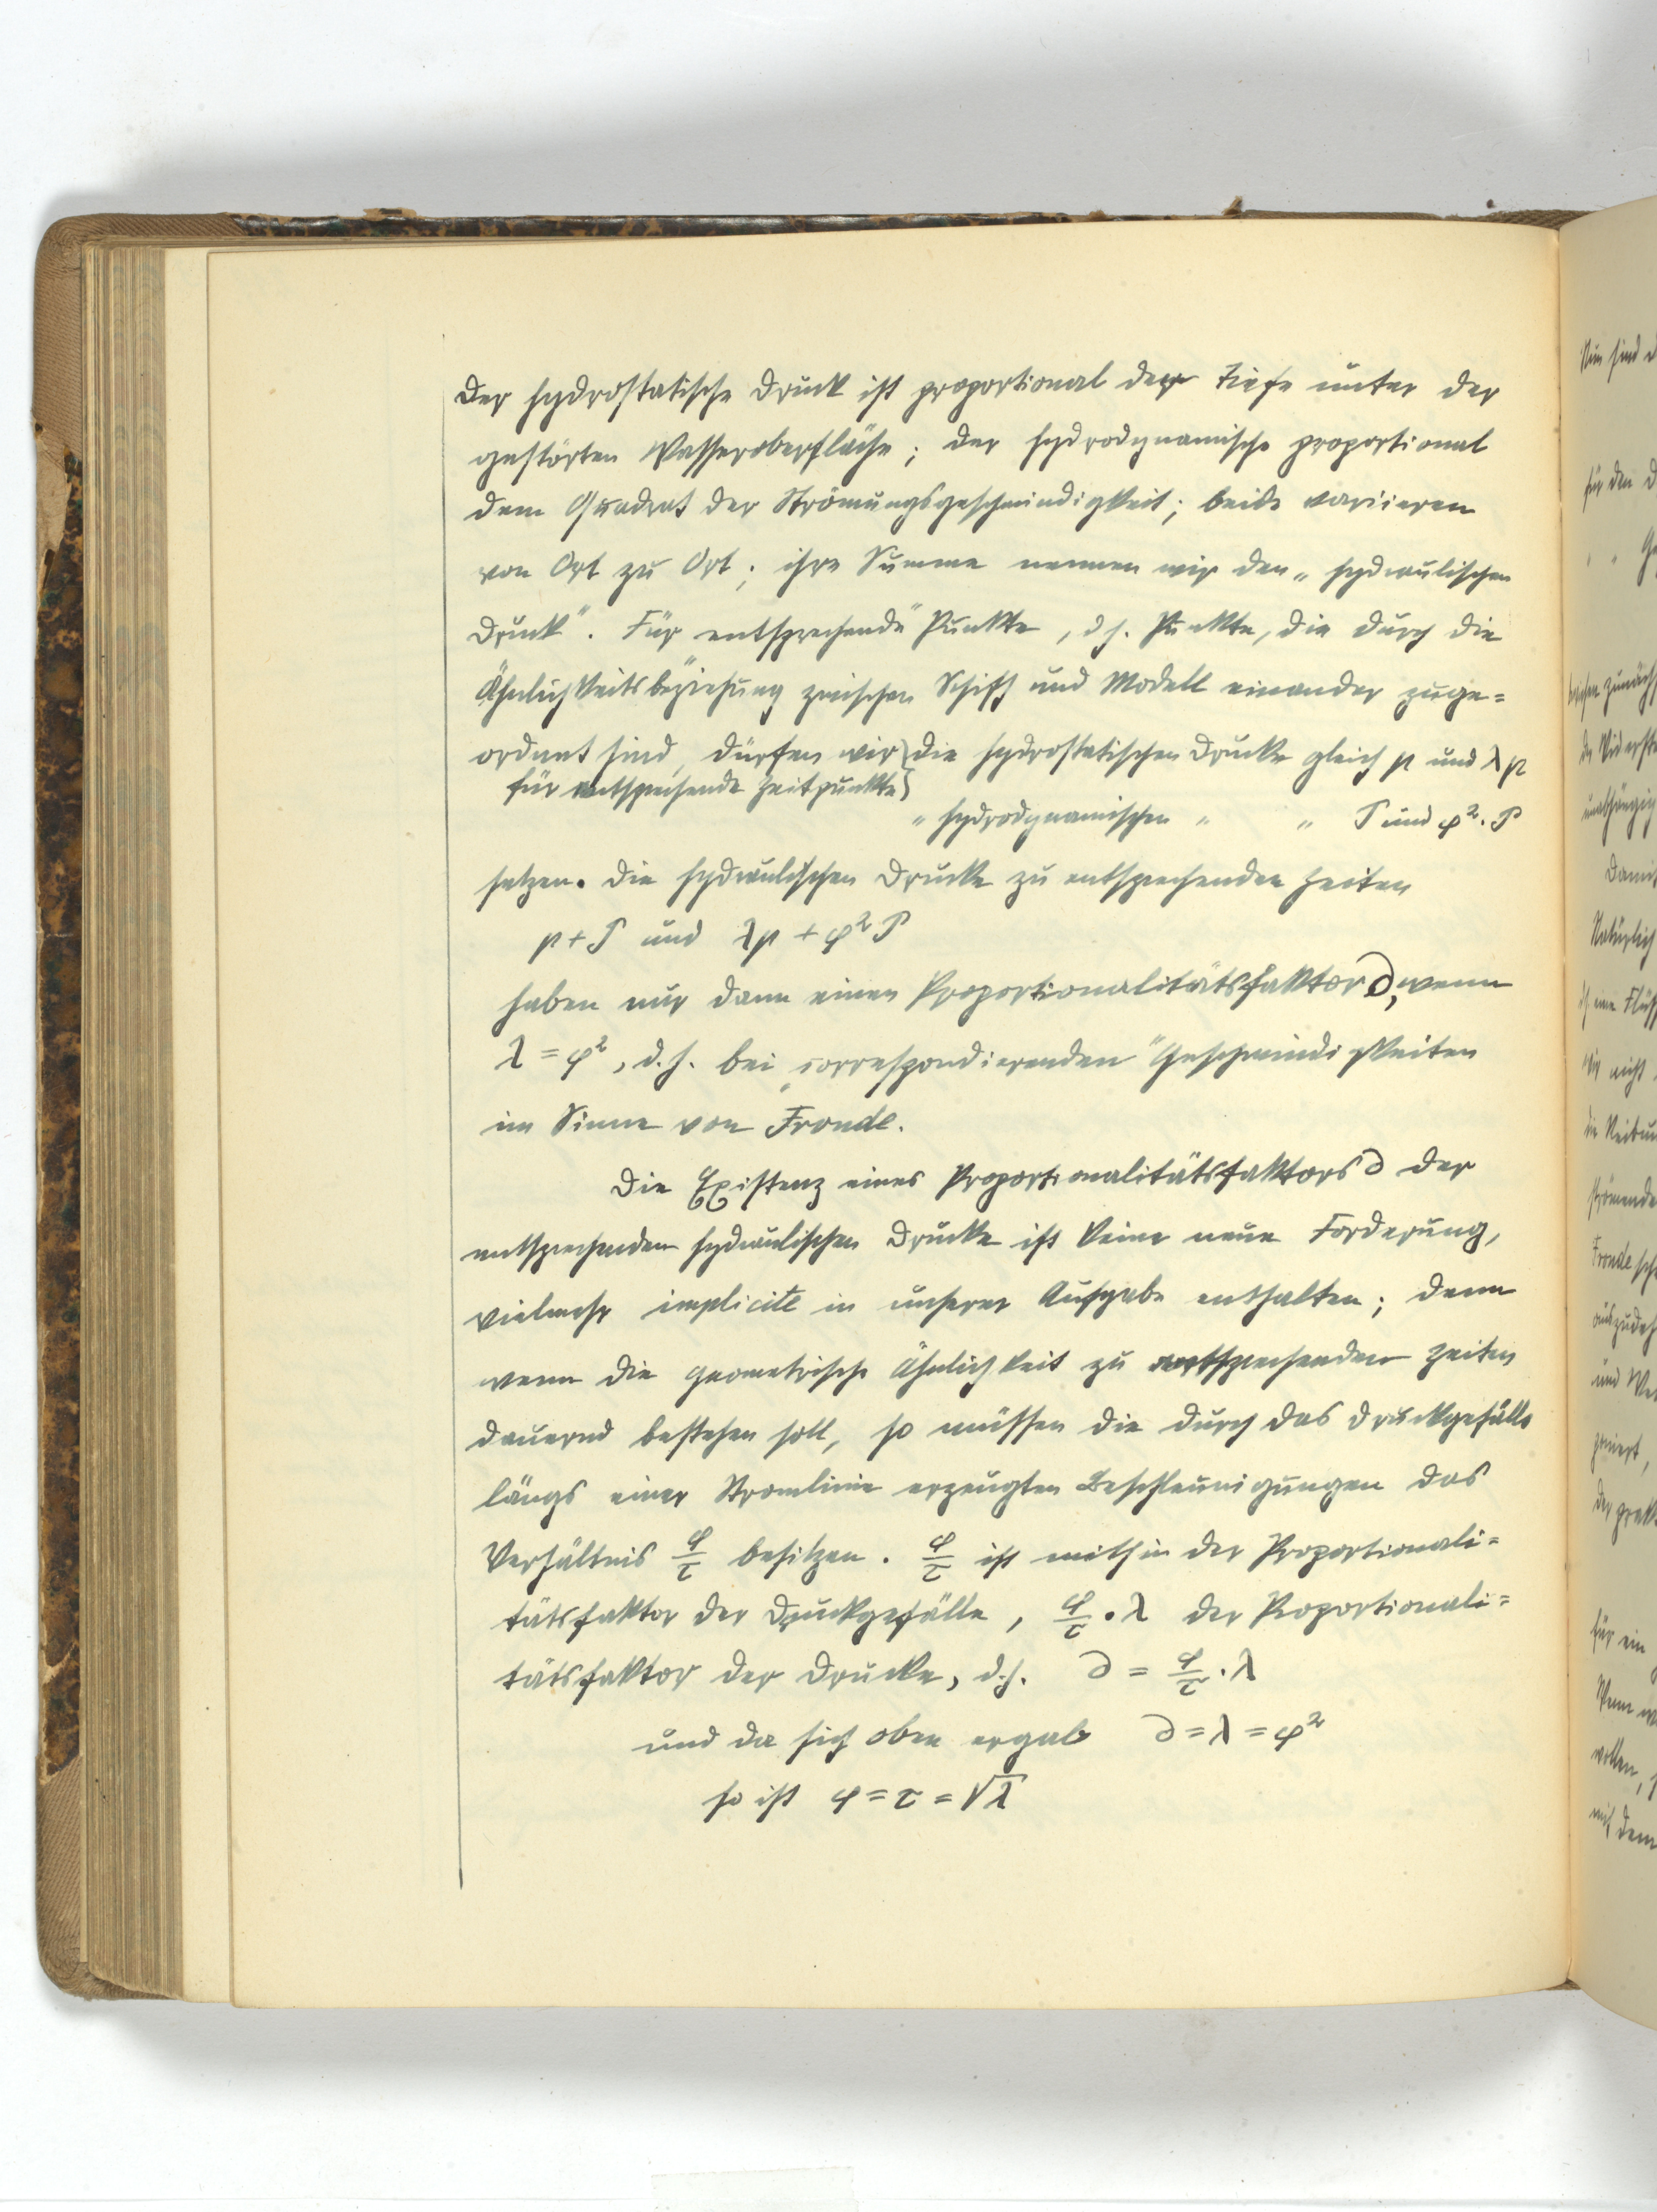 Der hydrostatische Druck ist proportional der Tiefe unter der
gestörten Wasseroberfläche; der hydrodynamische proportional
dem Quadrat der Strömungsgeschwindigkeit; beide variieren
von Ort zu Ort; ihre Summe nennen wir den „hydraulischen
Druck“. Für „entsprechende“ Punkte, d.h. Punkte, die durch die
Ähnlichkeitsbeziehung zwischen Schiff und Modell einander zuge=
ordnet sind, dürfen wir } die hydrostatischen Drucke gleich p und λp
für entsprechende Zeitpunkte }
" hydrodynamischen " " P und φ². P
setzen. Die hydraulischen Drucke zu entsprechenden Zeiten
p + P und λp + φ² P
haben nur dann einen Proportionalitätsfaktor ∂, wenn
λ = φ², d.h. bei „correspondierenden“ Geschwindigkeiten
im Sinne von Froude.
Die Existenz eines Proportionalitätsfaktors ∂ der
entsprechenden hydraulischen Drucke ist keine neue Forderung,
vielmehr implicite in unserer Aufgabe enthalten; denn
wenn die geometrische Ähnlichkeit zu entsprechenden Zeiten
dauernd bestehen soll, so müssen die durch das Druckgefälle
längs einer Stromlinie erzeugten Beschleunigungen das
Verhältnis φ/τ besitzen. φ/τ ist mithin der Proportionali=
tätsfaktor der Druckgefälle, φ/τ · λ der Proportionali=
tätsfaktor der Drucke, d.h. ∂ = φ/τ · λ
und da sich oben ergab ∂ = λ = φ²
so ist φ = τ = √λ